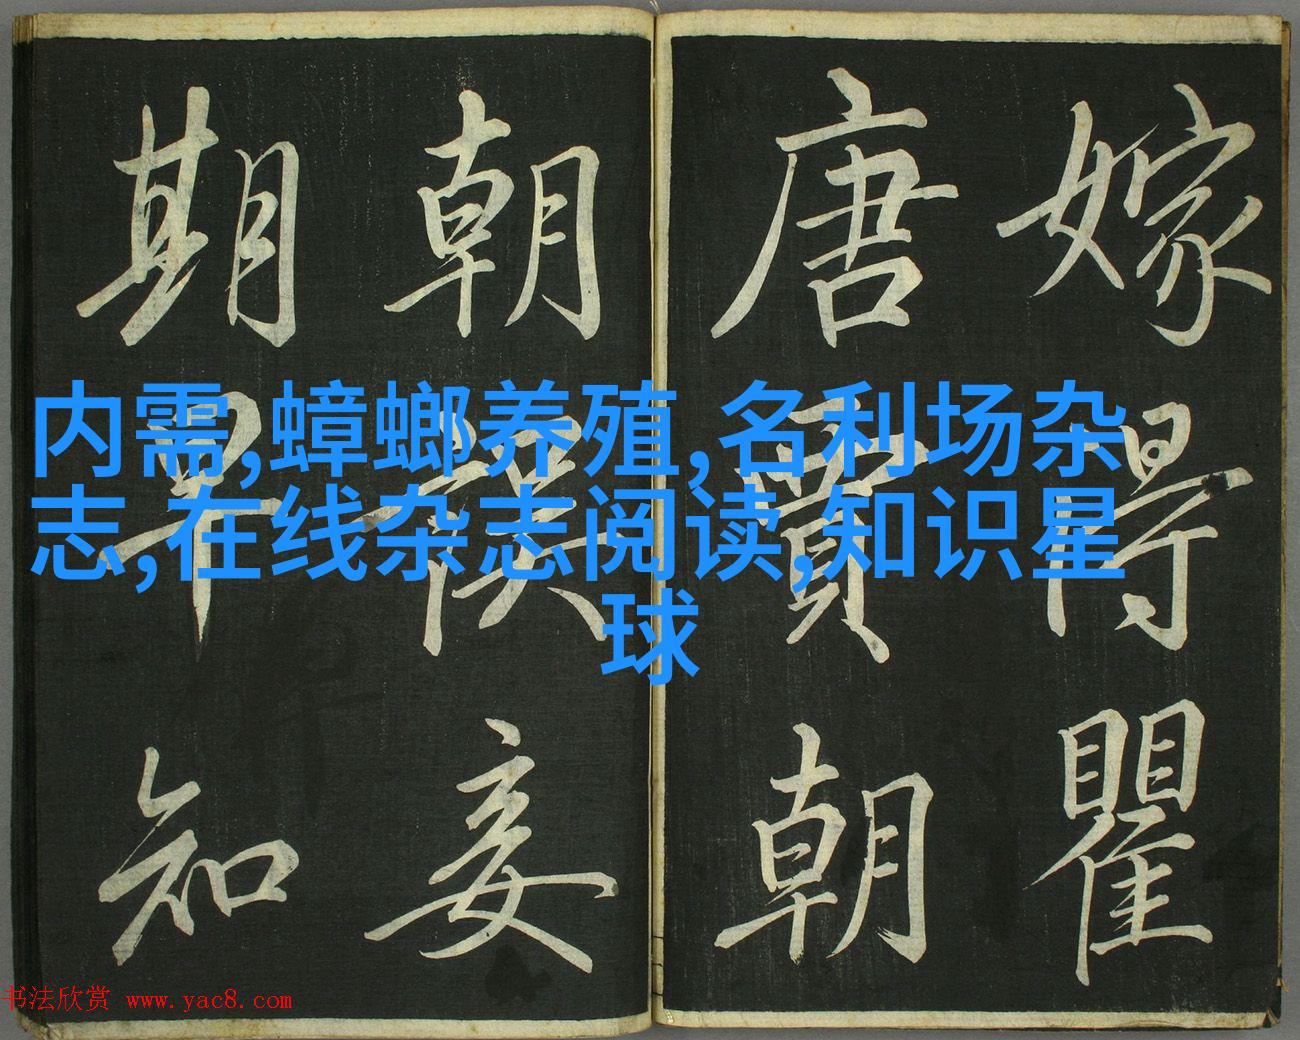 嫁得瞿
唐賈朝
朝誤妾
期早知
内需,蟑螂养殖,名利场杂
志,在线杂志阅读,知识星
球
书法欣赏 www.yac8.com